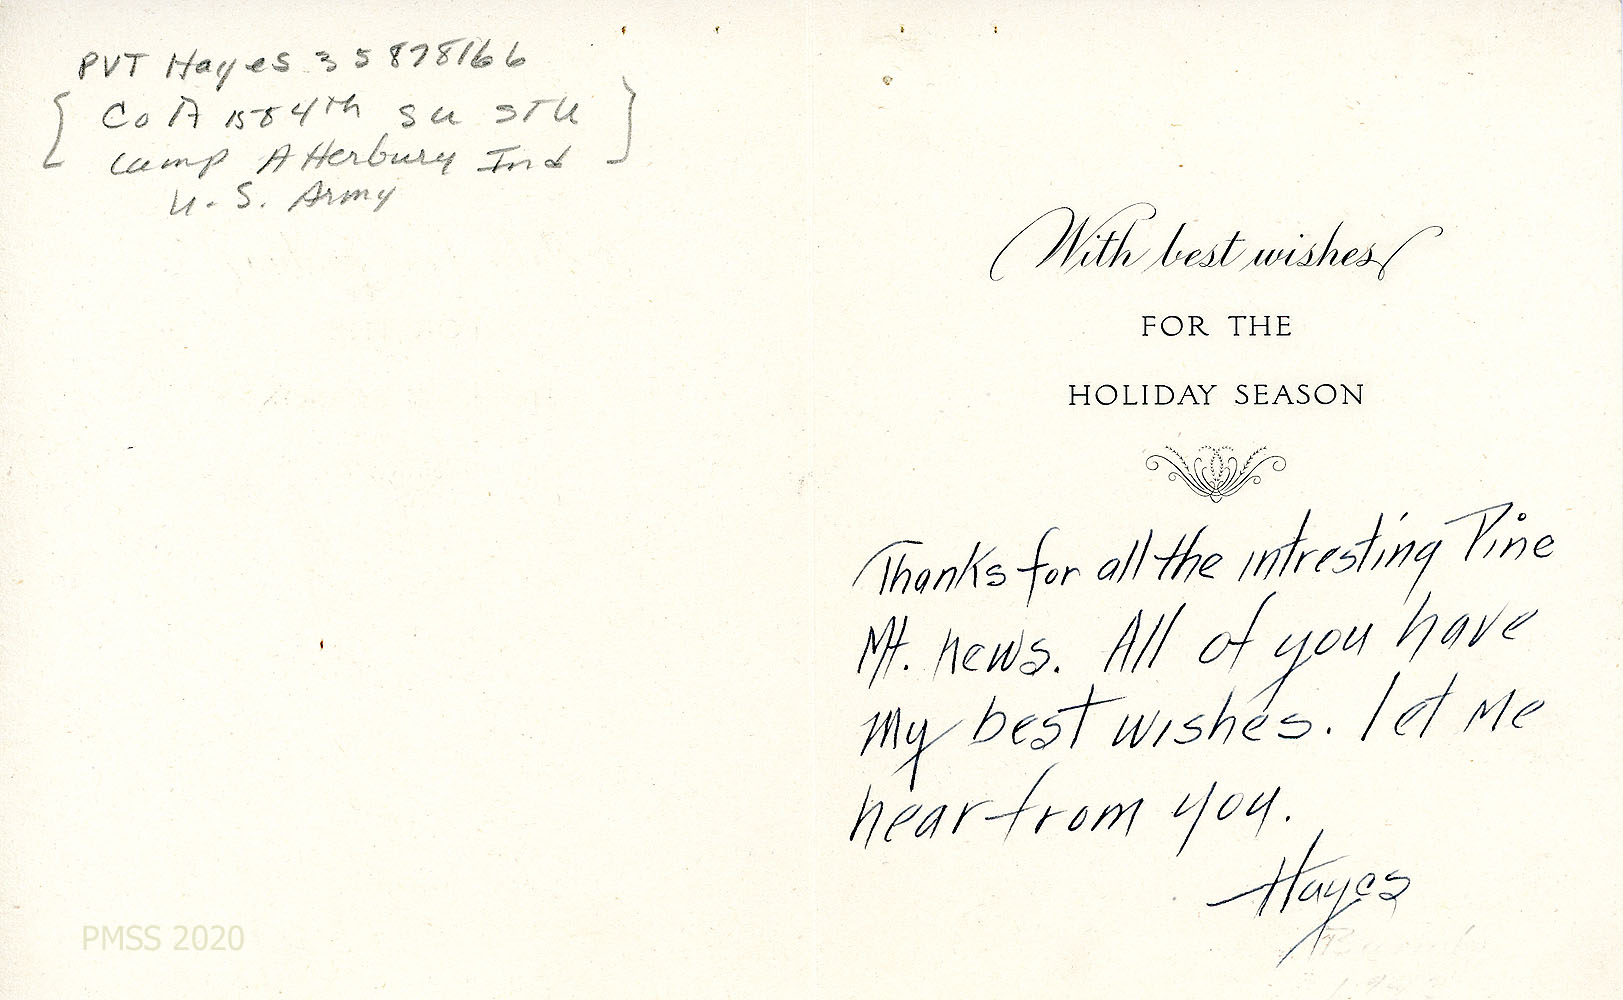 PVT Hayes 35878166
Co A 1584th SU STU
Camp Atterbury Ind
U.S. Army
With best wishes
FOR THE
HOLIDAY SEASON
Thanks for all the intresting Pine
Mt. news. All of you have
my best wishes. let me
hear from you.
Hayes
PMSS 2020